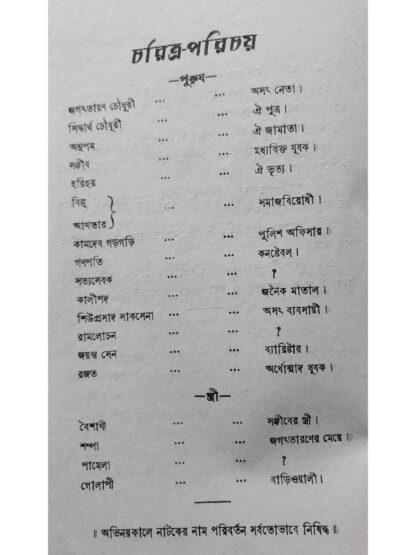 চরিত্র-পরিচয়
—পুরুষ—
জগৎতারণ চৌধুরী ... ... অসৎ নেতা।
সিদ্ধার্থ চৌধুরী ... ... ঐ পুত্র।
অনুপম ... ... ঐ জামাতা।
সঞ্জীব ... ... মধ্যবিত্ত যুবক।
হরিহর ... ... ঐ ভৃত্য।
বিল্লু
আখতার } ... ... সমাজবিরোধী।
কামদেব গড়গড়ি ... ... পুলিশ অফিসার।
গণপতি ... ... কনষ্টেবল।
সত্যসেবক ... ... ?
কালীপদ ... ... জনৈক মাতাল।
শিউপ্রসাদ সাকসেনা ... ... অসৎ ব্যবসায়ী।
রামলোচন ... ... ?
জয়ন্ত সেন ... ... ব্যারিষ্টার।
রজত ... ... অর্ধোন্মাদ যুবক।
—স্ত্রী—
বৈশাখী ... ... সঞ্জীবের স্ত্রী।
শম্পা ... ... জগৎতারণের মেয়ে।
পামেলা ... ... ?
গোলাপী ... ... বাড়িওয়ালী।
॥ অভিনয়কালে নাটকের নাম পরিবর্তন সর্বতোভাবে নিষিদ্ধ ॥